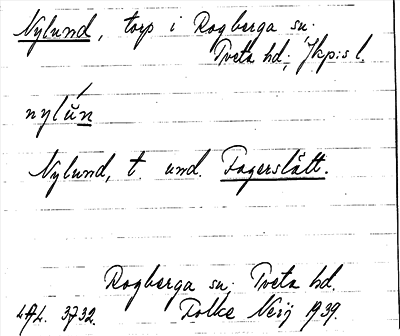 Nylund, torp i Rogberga sn.
Tveta hd; Jkp:s l.
nylún
Nylund, t. und. Fagerslätt.
Rogberga sn. Tveta hd.
3732. Folke Neij 1939.